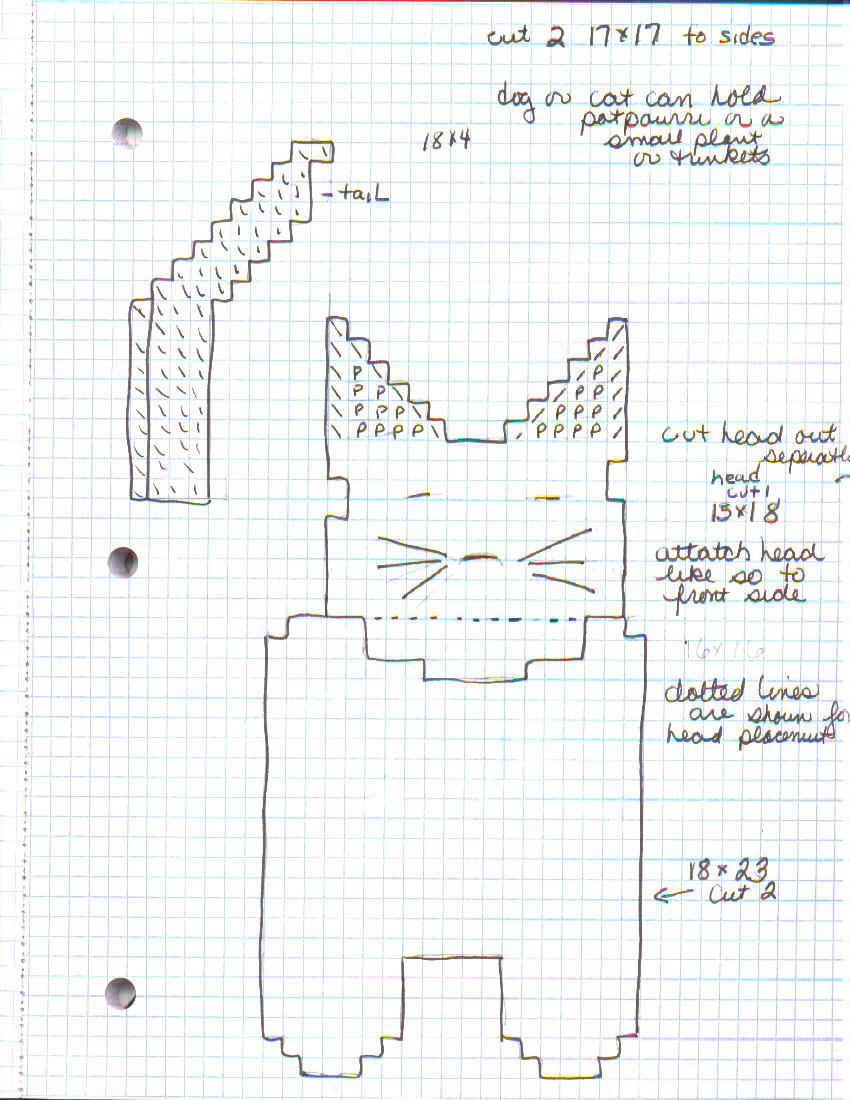 cut 2 17x17 to sides
dog or cat can hold
potpourri or a
small plant
or trinkets
18x4
- tail
P P
P P P P
P P P P P P
P P P P P P P P
cut head out
separate
head
cut 1
15x18
attatch head
like so to
front side
16x16
dotted lines
are shown for
head placement
18x23
← Cut 2